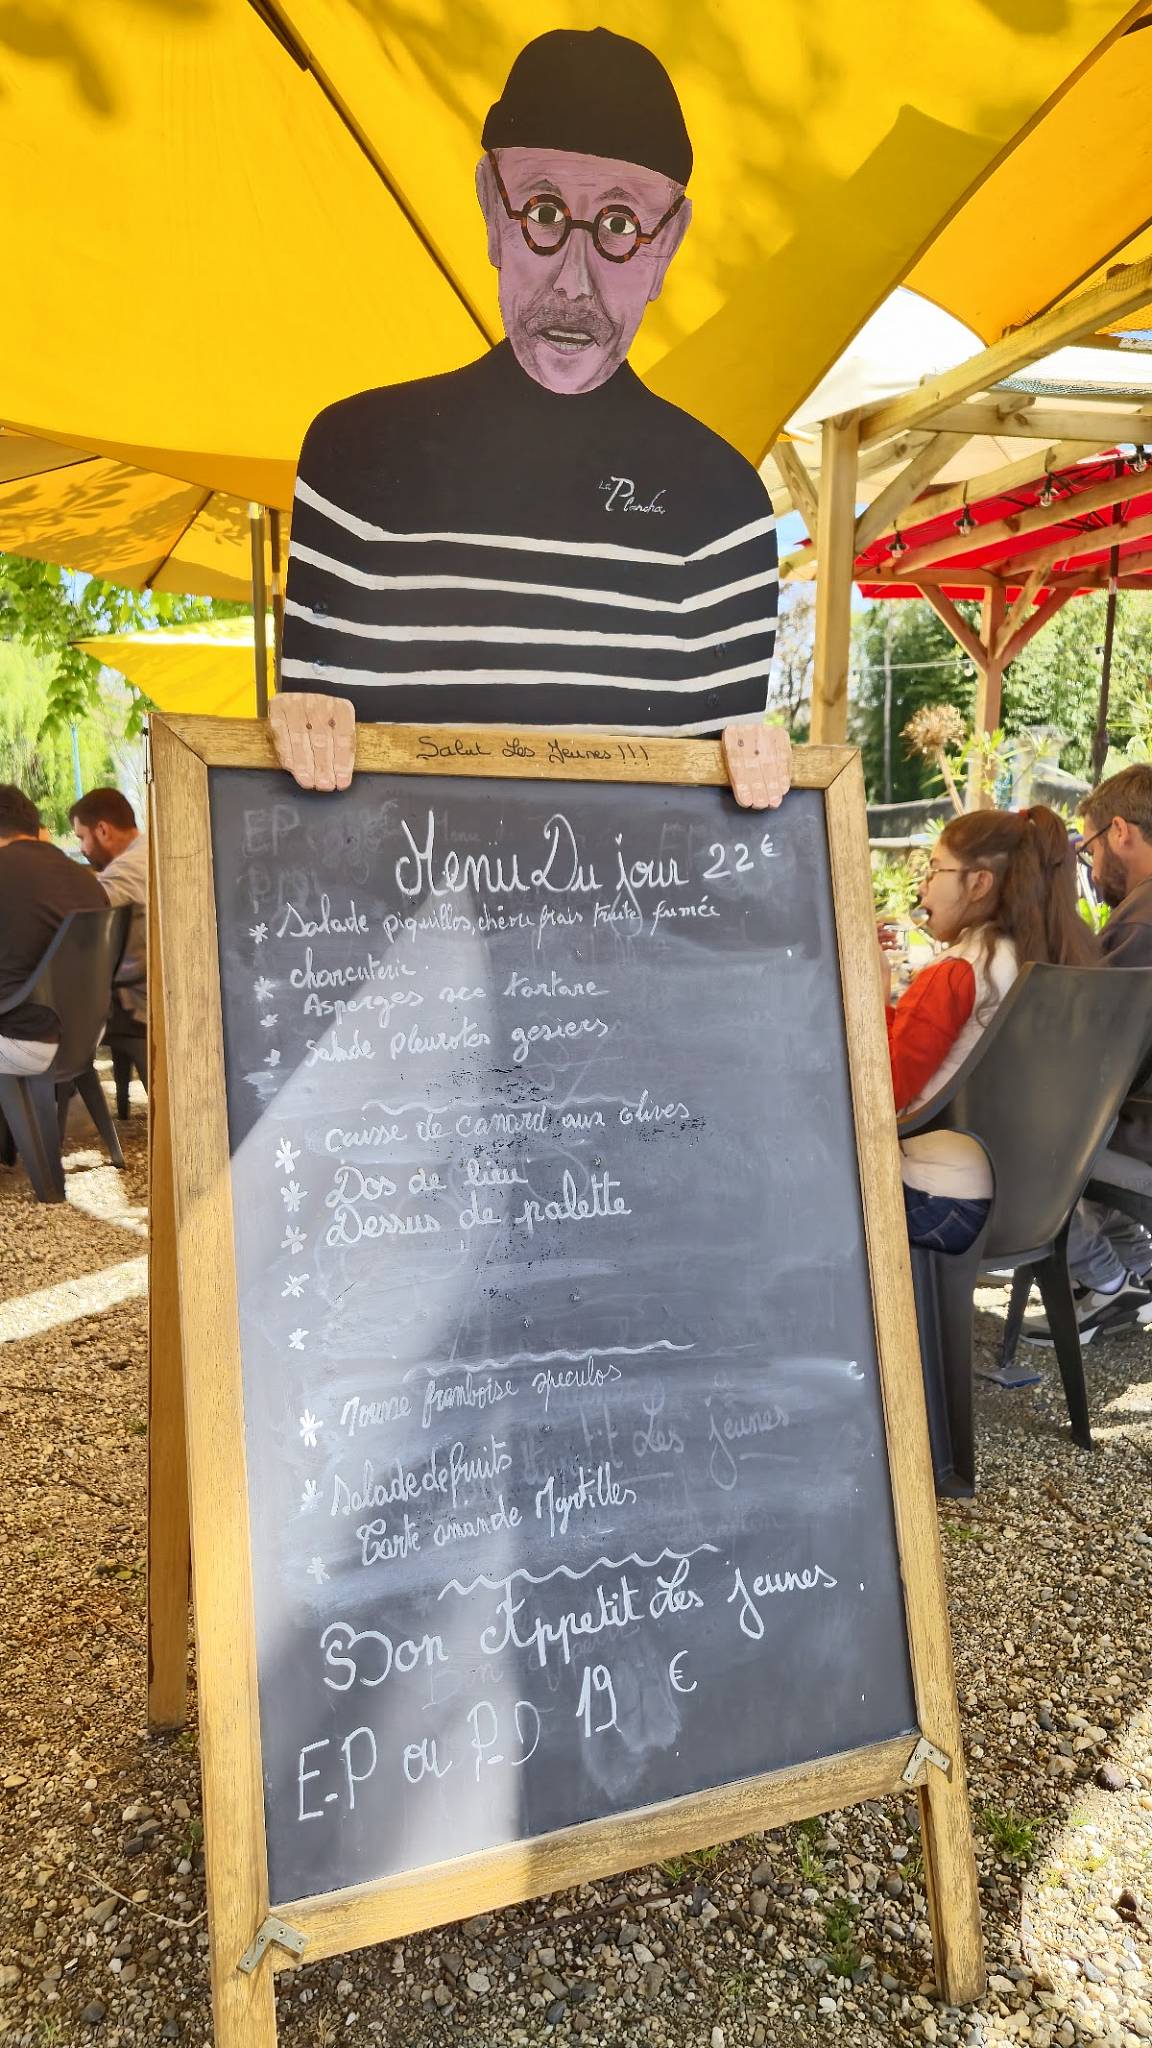 La Plancha
Salut Les Jeunes!!!
Menu Du jour 22€
* Salade piquillos, chèvre frais truite fumée
* charcuterie.
* Asperges sce tartare
* Salade pleurotes gesiers
* cuisse de canard aux olives
* Dos de lieu
* Dessus de palette
*
*
* Mousse framboise speculos
* Salade de fruits
* Tarte amande Myrtilles
Bon Appetit Les jeunes.
E.P ou P.D 19 €